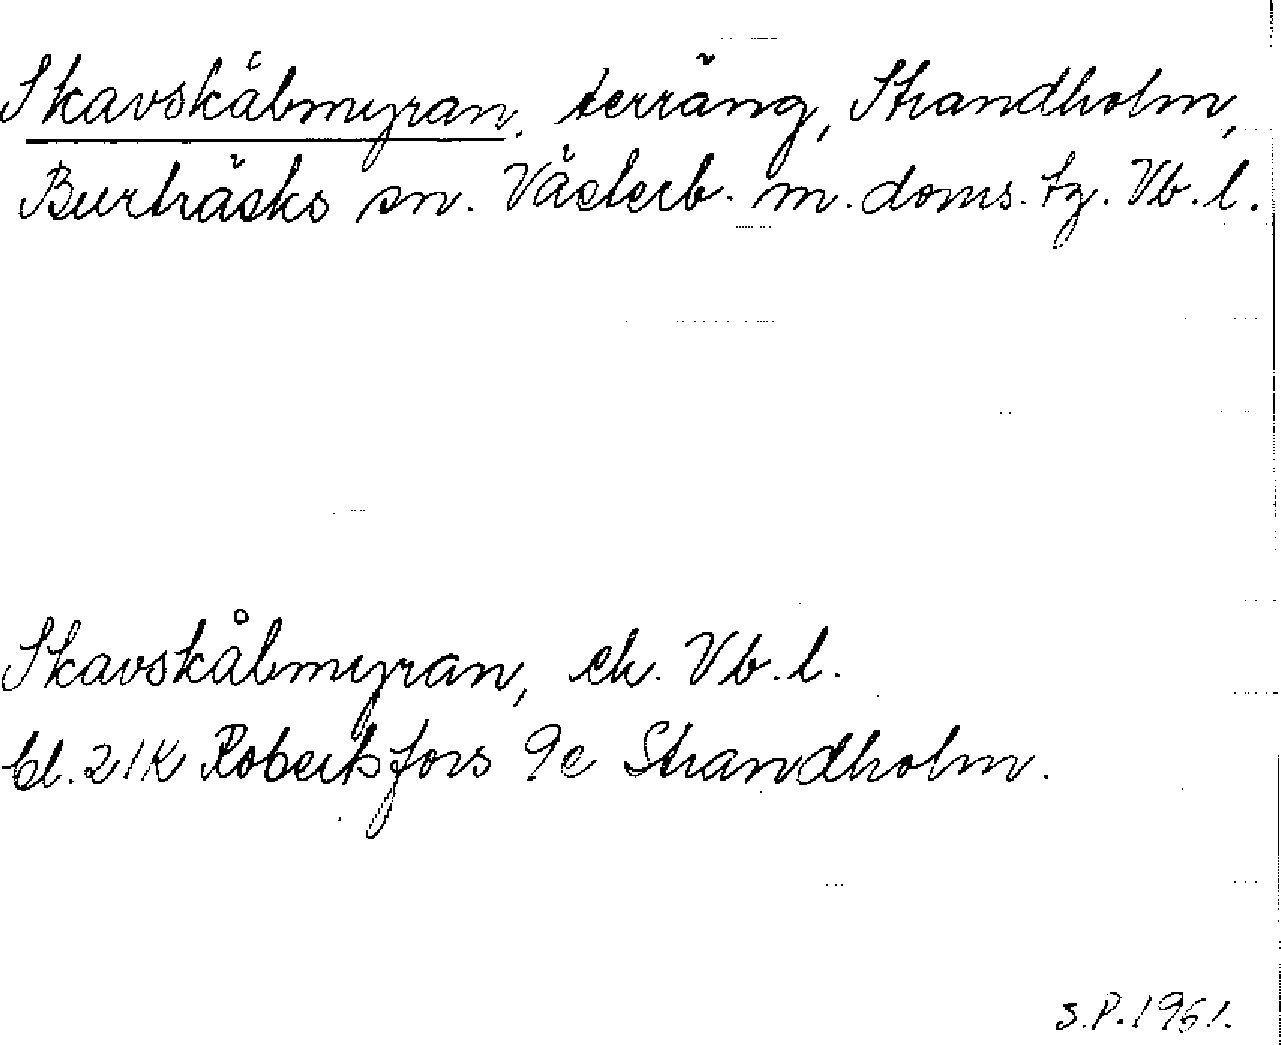 Skavskålmyran, terräng, Strandholm,
Burträsks sn. Västerb. m. doms. tg. Vb. l.
Skavskålmyran, ek. Vb. l.
bl. 21K Robertsfors 9e Strandholm.
S.P. 1961.